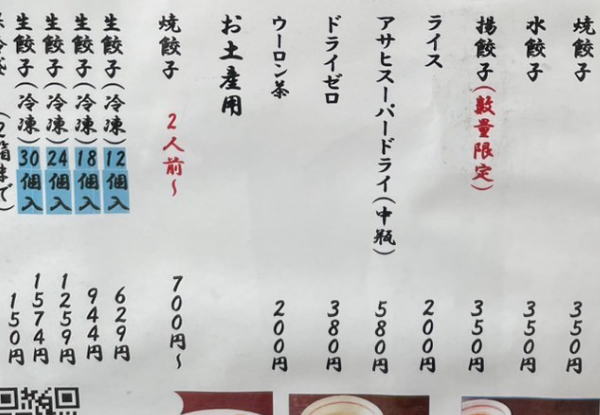 焼餃子 350円
水餃子 350円
揚餃子(数量限定) 350円
ライス 200円
アサヒスーパードライ(中瓶) 580円
ドライゼロ 380円
ウーロン茶 200円
お土産用
焼餃子 2人前~ 700円~
生餃子(冷凍)12個入 629円
生餃子(冷凍)18個入 944円
生餃子(冷凍)24個入 1259円
生餃子(冷凍)30個入 1574円
(2箱まで) 150円